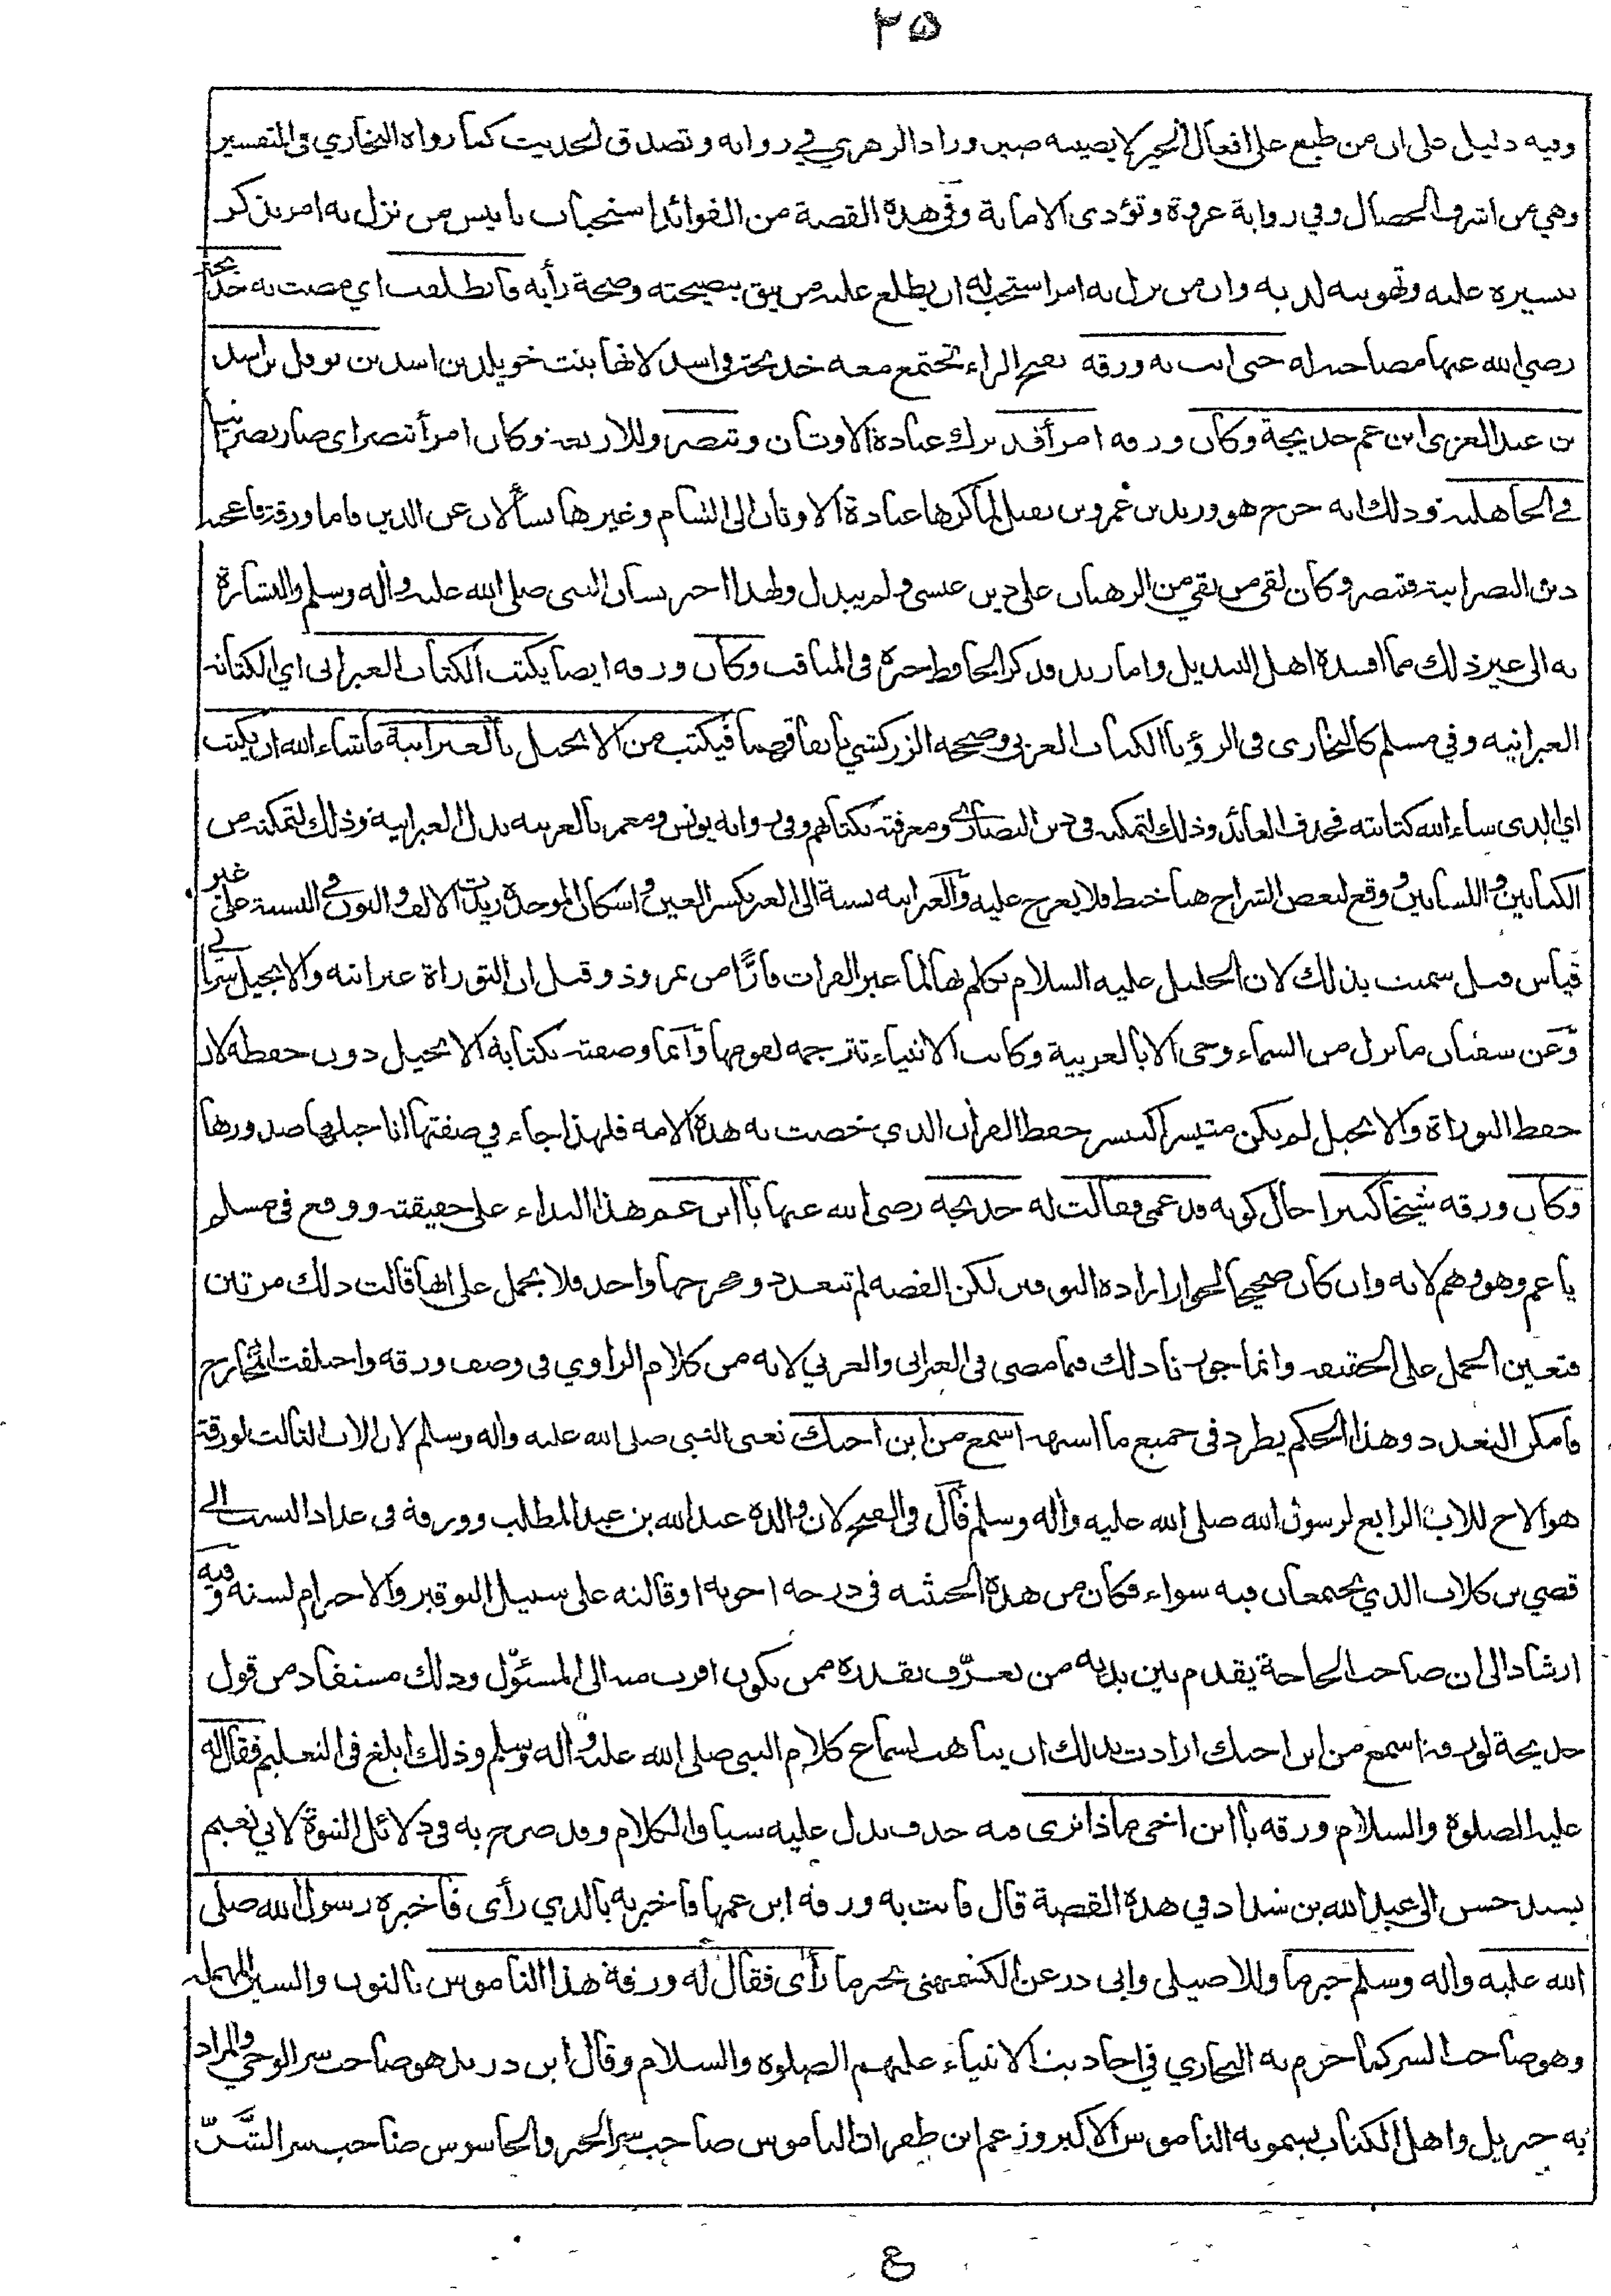 ٢٥
وفيه دليل على ان من طبع على افعال الخير لا يصيبه ضير وزاد الزهري في روايه وتصدق الحديث كما رواه البخاري في التفسير
وهي من اشرف الخصال وفي رواية عروة وتؤدى الامانة وفي هذه القصة من الفوائد استحباب تانيس من نزل به امر بذكر
تيسيره عليه وتهوينه لديه وان من نزل به امر استحب له ان يطلع عليه من يثق بنصيحته وصحة رأيه فانطلقت اي مضت به خديجة
رضي الله عنها مصاحبه له حتى اتت به ورقه بفتح الراء تجتمع معه خديجة في اسد لانها بنت خويلد بن اسد بن نوفل بن اسد
بن عبد العزى ابن عم خديجة وكان ورقه امرأ قد ترك عبادة الاوثان وتنصر وللاربعة وكان امرأ تنصر اى صار نصرانيا
في الجاهلية وذلك انه خرج هو وزيد بن عمرو بن نفيل لما كرها عبادة الاوثان الى الشام وغيرها يسألان عن الدين فاما ورقة فاعجبه
دين النصرانية فتنصر وكان لقى من بقي من الرهبان على دين عيسى ولم يبدل ولهذا اخبر بشان النبى صلى الله عليه وأله وسلم والبشارة
به الى غير ذلك مما افسده اهل التبديل واما زيد فذكر الحافظ خبره في المناقب وكان ورقه ايضا يكتب الكتاب العبرانى اي الكتابة
العبرانيه وفي مسلم كالبخارى في الرؤيا الكتاب العربي وصححه الزركشي باتفاقهما فيكتب من الانجيل بالعبرانية ما شاء الله ان يكتب
اي الذى شاء الله كتابته فحذف العائد وذلك لتمكنه في دين النصارى ومعرفته بكتابهم وفي رواية يونس ومعمر بالعربيه بدل العبرانية وذلك لتمكنه من
الكتابين واللسانين ووقع لبعض الشراح هنا خبط فلا يعرج عليه والعبرانيه نسبة الى العبر بكسر العين واسكان الموحدة زيدت الالف والنون في النسبة على غير
قياس قيل سميت بذلك لان الخليل عليه السلام تكلم بها لما عبر الفرات فارًّا من نمروذ وقيل ان التوراة عبرانيه والانجيل سريانى
وعن سفيان ما نزل من السماء وحى الا بالعربية وكانت الانبياء تترجمه لقومها وانما وصفته بكتابة الانجيل دون حفظه لان
حفظ التوراة والانجيل لم يكن متيسرا كتيسر حفظ القرأن الذي خصت به هذه الامه فلهذا جاء في صفتها اناجيلها صدورها
وكان ورقه شيخا كبيرا حال كونه قد عمى فقالت له خديجه رضى الله عنها يا ابن عم هذا النداء على حقيقته ووقع في مسلم
يا عم وهو وهم لانه وان كان صحيحا لجواز ارادة التوقير لكن القصه لم تتعدد ومخرجها واحد فلا يحمل على انها قالت ذلك مرتين
فتعين الحمل على الحقيقه وانما جوزنا ذلك فيما مضى في العبرانى والعربي لانه من كلام الراوي في وصف ورقه واختلفت المخارج
فامكن التعدد وهذا الحكم يطرد في جميع ما اشبهه اسمع من ابن اخيك تعنى النبي صلى الله عليه واله وسلم لان الاب الثالث لورقة
هو الاخ للاب الرابع لرسول الله صلى الله عليه وأله وسلم قال في الفتح لان والده عبد الله بن عبد المطلب وورقة في عداد النسب الى
قصي بن كلاب الذي يجتمعان فيه سواء فكان من هذه الحيثيه في درجه اخوته او قالته على سبيل التوقير والاحترام لسنه وفيه
ارشاد الى ان صاحب الحاجة يقدم بين يديه من يعرّف بقدره ممن يكون اقرب منه الى المسئول وذلك مستفاد من قول
خديجة لورقة اسمع من ابن اخيك ارادت بذلك ان يتاهب لسماع كلام النبى صلى الله عليه وأله وسلم وذلك ابلغ في التعليم فقال له
عليه الصلوة والسلام ورقه يا ابن اخى ماذا ترى فيه حذف يدل عليه سياق الكلام وقد صرح به في دلائل النبوة لابي نعيم
بسند حسن الى عبد الله بن شداد في هذه القصة قال فاتت به ورقه ابن عمها فاخبرته بالذي رأى فاخبره رسول الله صلى
الله عليه واله وسلم خبر ما وللاصيلى وابى ذر عن الكشميهنى بخبر ما رأى فقال له ورقة هذا الناموس بالنون والسين المهملة
وهو صاحب السر كما جزم به البخاري في احاديث الانبياء عليهم الصلوه والسلام وقال ابن دريد هو صاحب سر الوحي والمراد
به جبريل واهل الكتاب يسمونه الناموس الاكبر وزعم ابن ظفر ان الناموس صاحب سر الخير والجاسوس صاحب سر الشّرّ